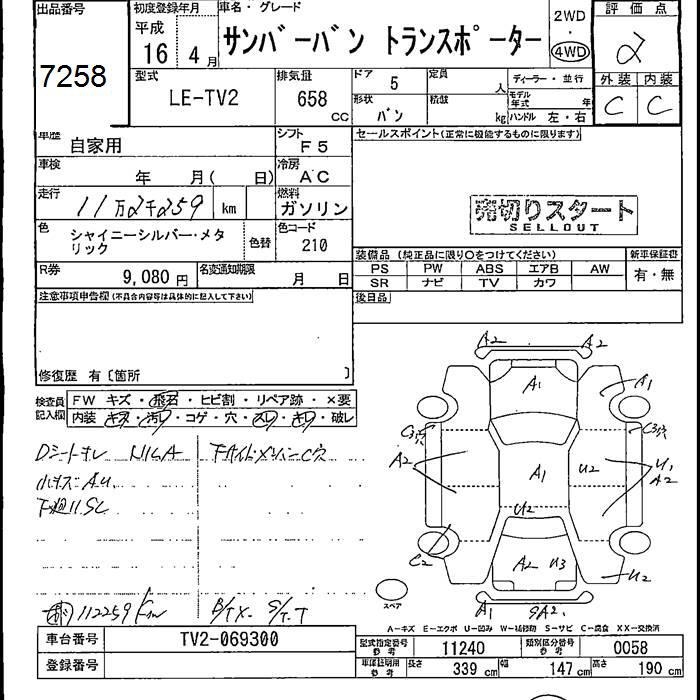 出品番号
7258
初度登録年月
平成
16 年 4 月
車名・グレード
サンバーバン トランスポーター
2WD
・
4WD
評価点
2
外装 内装
C C
型式
LE-TV2
排気量
658 cc
ドア
5
定員
人
形状
バン
積載
kg
ディーラー・並行
モデル年式 年
ハンドル 左・右
車歴
自家用
シフト
F5
セールスポイント(正常に機能するものに限ります)
車検
年 月( 日)
冷房
AC
走行
11万2千259 km
燃料
ガソリン
売切りスタート
SELLOUT
色
シャイニーシルバー・メタリック
色替
色コード
210
R券
9,080 円
名変通知期限
月 日
装備品 (純正品に限り○をつけてください)
PS PW ABS エアB AW
SR ナビ TV カワ
新車保証書
有・無
後日品
注意事項申告欄(不具合内容等は具体的に記入して下さい)
修復歴 有〔箇所 〕
検査員記入欄
FW キズ・飛石・ヒビ割・リペア跡・×要
内装・キズ・汚れ・コゲ・穴・スレ・キレ・破レ
Dシートキレ
下廻りSC
112259Km
A2 A2
A1 A1
C3穴 C3穴
A2 A1 U2 U1
A2
U2
C2 A2 U3 U2
A1 SA2
スペア
A-キズ E-エクボ U-凹み W-補修跡 S-サビ C-腐食 XX-交換済
車台番号
TV2-069300
登録番号
型式指定番号
参考
11240
類別区分番号
参考
0058
車庫証明用
参考
長さ 339 cm 幅 147 cm 高さ 190 cm